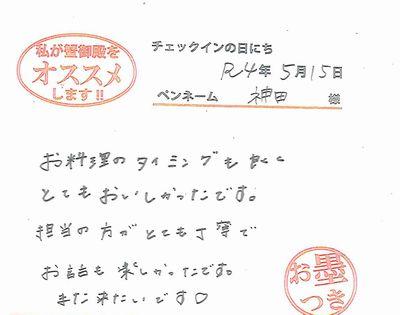 私が蟹御殿を
オススメ
します!!
チェックインの日にち
R4年 5月15日
ペンネーム 神田 様
お料理のタイミングも良く
とてもおいしかったです。
担当の方がとても丁寧で
お話も楽しかったです。
また来たいです♡
お墨
つき